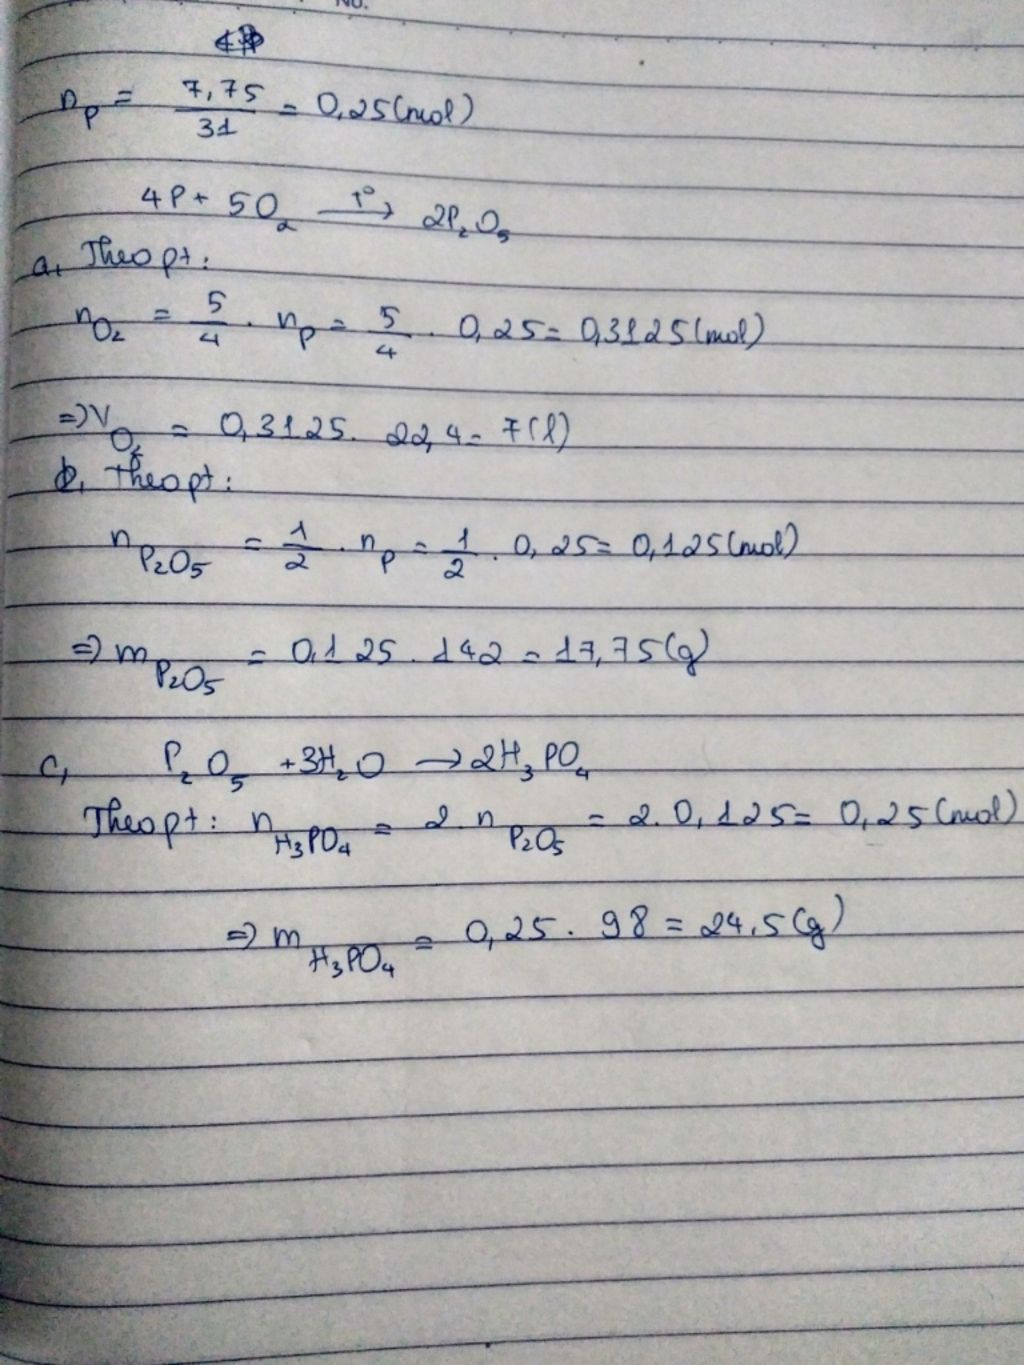 No.
n_P = 7,75/31 = 0,25(mol)
4P + 5O₂ —t°→ 2P₂O₅
a, Theo pt:
n_O₂ = 5/4 . n_P = 5/4 . 0,25 = 0,3125(mol)
=> V_O₂ = 0,3125. 22,4 = 7(l)
b, Theo pt:
n_P₂O₅ = 1/2 . n_P = 1/2 . 0,25 = 0,125(mol)
=> m_P₂O₅ = 0,125 . 142 = 17,75(g)
c, P₂O₅ + 3H₂O → 2H₃PO₄
Theo pt: n_H₃PO₄ = 2. n_P₂O₅ = 2. 0,125 = 0,25(mol)
=> m_H₃PO₄ = 0,25. 98 = 24,5(g)